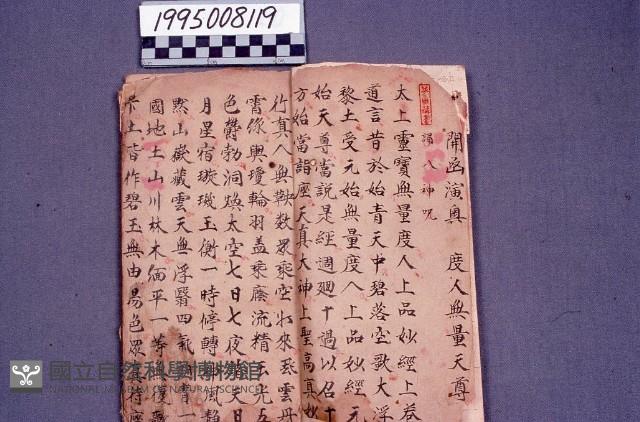 1995008119
開函演奧 度人無量天尊
誦八神呪
太上靈寶無量度人上品妙經上卷
道言昔於始青天中碧落空歌大浮
黎土受元始無量度人上品妙經元
始天尊當說是經週廻十過以召十
方始當詣座天真大神上聖高真妙
行真人無鞅數眾乘空而來飛雲丹
霄綠輿瓊輪羽蓋乘廕流精玉光五
色鬱勃洞煥太空七日七夜 天日
月星宿璇璣玉衡一時停轉 風靜
默山嶽藏雲天無浮翳四氣 一
國地土山川林木緬平一等 復
土皆作碧玉無由易色眾真侍座
國立自然科學博物館
NATIONAL MUSEUM OF NATURAL SCIENCE